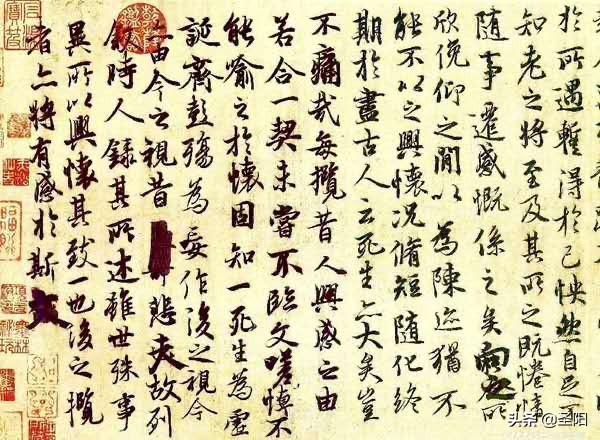 於所遇蹔得於己怏然自足不
知老之將至及其所之既惓情
隨事遷感慨係之矣向之所
欣俛仰之閒以為陳迹猶不
能不以之興懷況脩短隨化終
期於盡古人云死生亦大矣豈
不痛哉每攬昔人興感之由
若合一契未嘗不臨文嗟悼不
能喻之於懷固知一死生為虛
誕齊彭殤為妄作後之視今
亦由今之視昔悲夫故列
敘時人錄其所述雖世殊事
異所以興懷其致一也後之攬
者亦將有感於斯文
头条 @圣阳